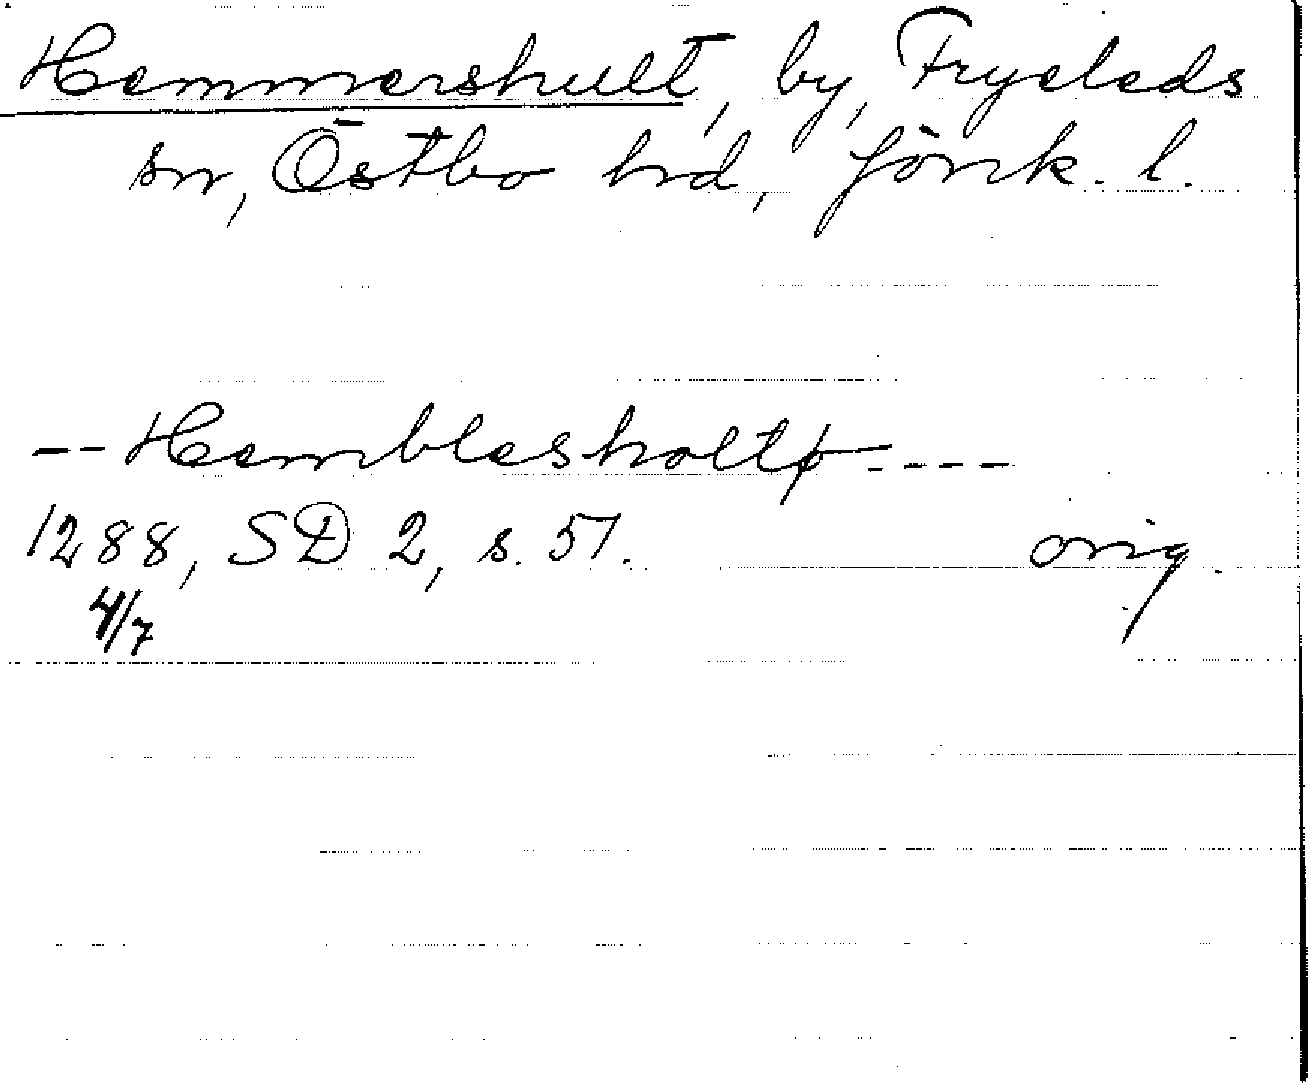 Hemmershult, by, Fryeleds
sn, Östbo hrd, Jönk. l.
-- Hemblesholtp ----
1288, SD 2, s. 51. orig.
4/7